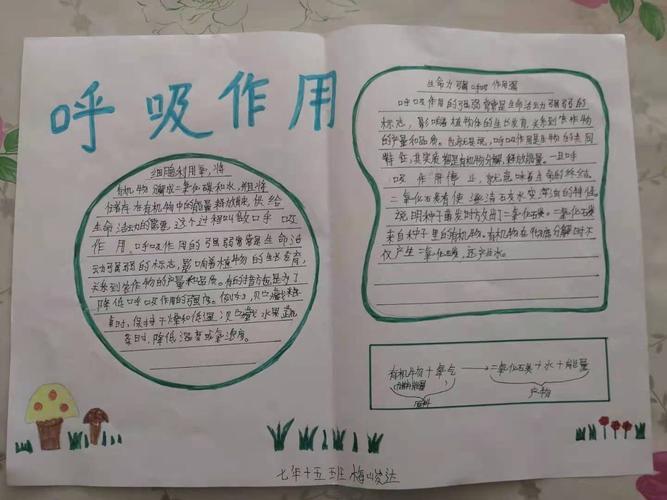 呼吸作用
细胞利用氧,将
有机物分解成二氧化碳和水,并将
储存在有机物中的能量释放出来,供给
生命活动的需要,这个过程叫做呼吸
作用。呼吸作用的强弱常常是生命活
动强弱的标志,影响着植物的生长发育,
关系到农作物的产量和品质。有的储存方法是为了
降低呼吸作用的强度。例如,贮藏粮
食时,保持干燥和低温;贮藏水果蔬
菜时,降低温度或氧浓度。
生命力强呼吸作用强
呼吸作用的强弱常常是生命活动强弱的
标志,影响着植物体的生长发育,关系到农作物
的产量和品质。呼吸作用是生物的共同
特征,其实质都是有机物分解,释放能量。一旦呼
吸作用停止,就意味着生命的终结。
二氧化碳具有使澄清石灰水变浑浊的特性,
说明种子萌发时放出了二氧化碳。二氧化碳
来自种子里的有机物。有机物在彻底分解时不
仅产生二氧化碳,还产出水。
有机物+氧气→二氧化碳+水+能量
(储存能量)
原料
产物
七年十五班 梅峻达